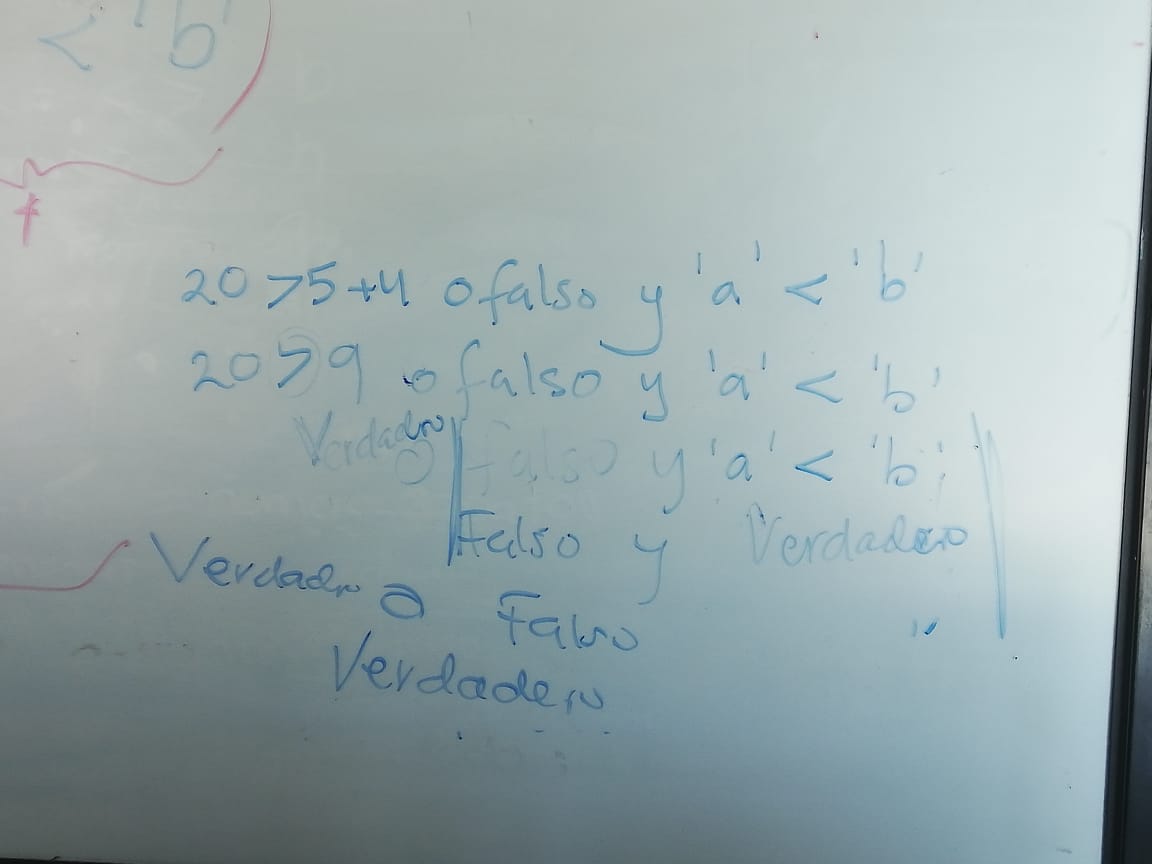 < 'b'
f
20 > 5 + 4 o falso y 'a' < 'b'
20 > 9 o falso y 'a' < 'b'
Verdadero o falso y 'a' < 'b'
Falso y Verdadero
Verdadero o Falso
Verdadero